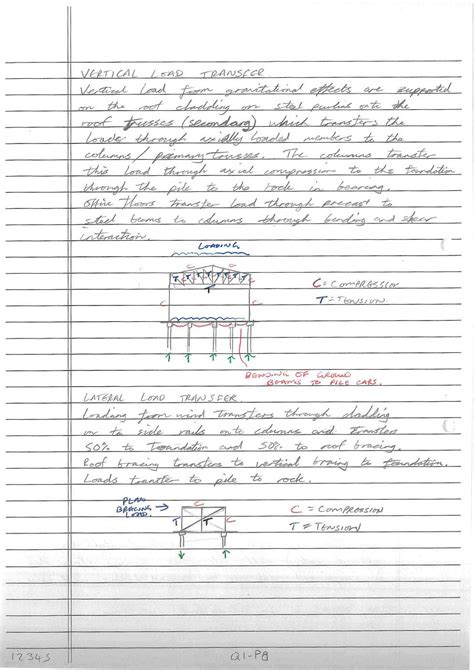 VERTICAL LOAD TRANSFER
Vertical Load from gravitational effects are supported
on the roof cladding on steel purlins onto the
roof trusses (secondary) which transfers the
Loads through axially Loaded members to the
columns / primary trusses. The columns transfer
this Load through axial compression to the foundation
through the pile to the rock in bearing.
Office floors transfer Load through precast to
steel beams to columns through bending and shear
interaction.
LOADING
C
C
C
C
T
C = COMPRESSION
T = TENSION
BENDING OF GROUND
BEAMS TO PILE CAPS.
LATERAL LOAD TRANSFER.
Loading from wind transfers through cladding
on to side rails onto columns and transfers
50% to Foundation and 50% to roof bracing.
Roof bracing transfers to vertical bracing to foundation.
Loads transfer to pile to rock.
PLAN
BRACING
LOAD.
C
T
T
C
C = COMPRESSION
T = TENSION
12345
Q1-P8